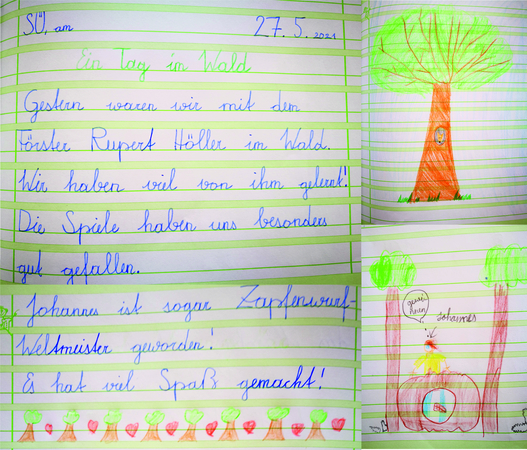 SÜ, am 27.5.2021
Ein Tag im Wald
Gestern waren wir mit dem
Förster Rupert Höller im Wald.
Wir haben viel von ihm gelernt!
Die Spiele haben uns besonders
gut gefallen.
Johannes ist sogar Zapfenwurf-
Weltmeister geworden!
Es hat viel Spaß gemacht!
Johannes